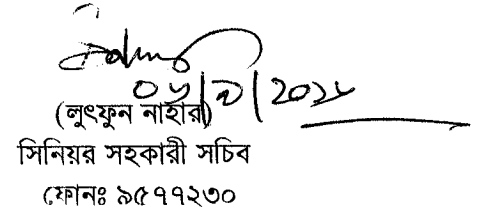 ০৬/৯/২০১৮
(লুৎফুন নাহার)
সিনিয়র সহকারী সচিব
ফোনঃ ৯৫৭৭২৩০